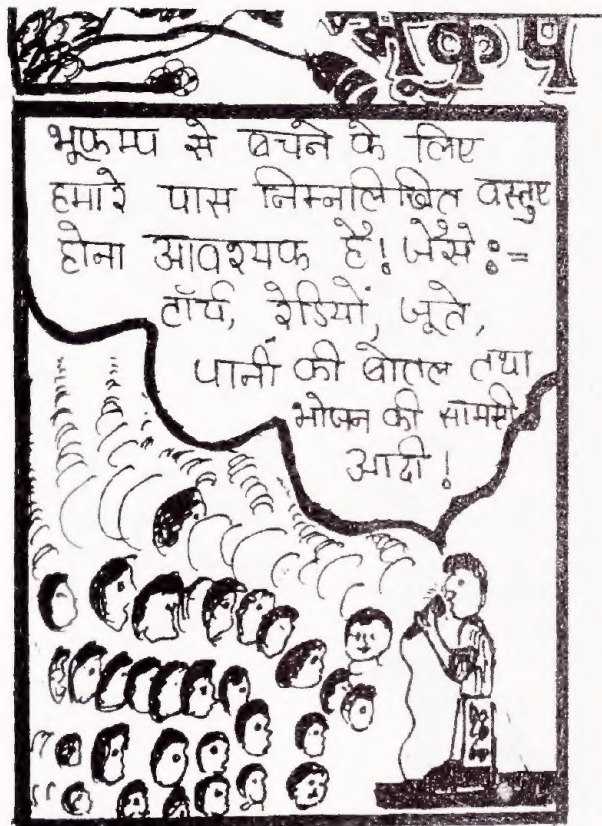 भूकम्प से बचने के लिए
हमारे पास निम्नलिखित वस्तुए
होना आवश्यक है! जैसे:=
टॉर्च, रेडियों, जूते,
पानी की बोतल तथा
भोजन की सामग्री
आदी!